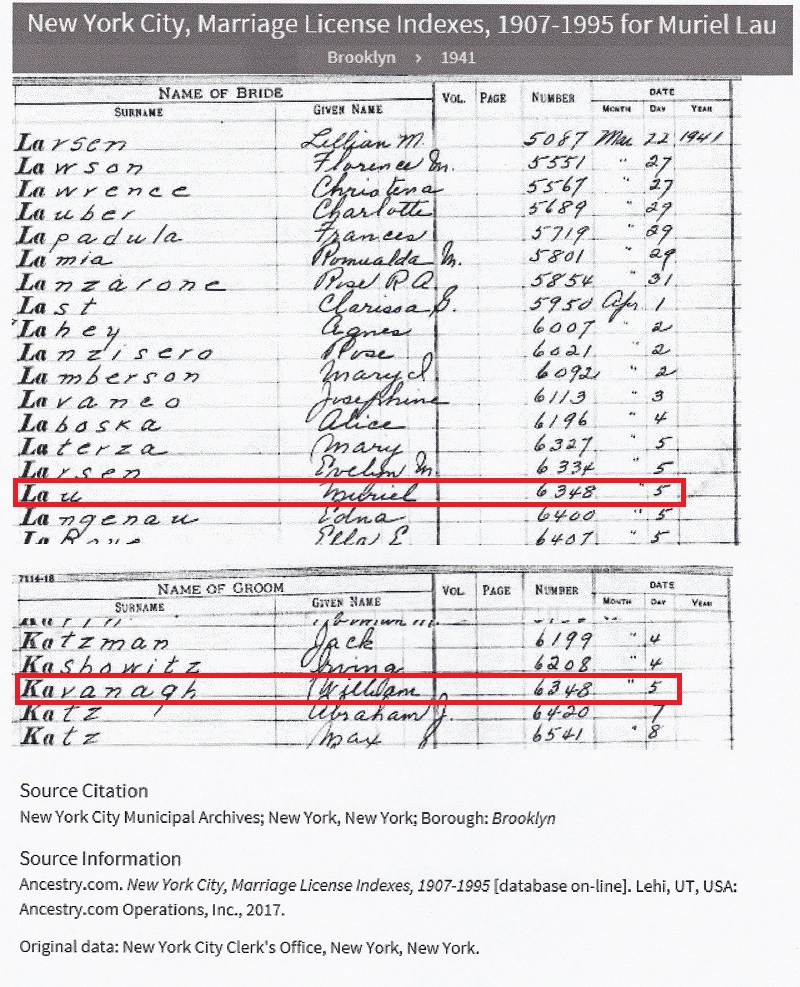 New York City, Marriage License Indexes, 1907-1995 for Muriel Lau
Brooklyn > 1941
NAME OF BRIDE VOL. PAGE NUMBER DATE
SURNAME GIVEN NAME MONTH DAY YEAR
Larsen Lillian M. 5087 Mar 22 1941
Lawson Florence M. 5551 " 27
Lawrence Christena 5567 " 27
Lauber Charlotte 5689 " 29
Lapadula Frances 5719 " 29
Lamia Romualda M. 5801 " 29
Lanzarone Rose R A. 5854 " 31
Last Clarissa G. 5950 Apr 1
Lahey Agnes 6007 " 2
Lanzisero Rose 6021 " 2
Lamberson Mary J. 6092 " 2
Lavaneo Josephine 6113 " 3
Laboska Alice 6196 " 4
Laterza Mary 6327 " 5
Larsen Evelyn M. 6334 " 5
Lau Muriel 6348 " 5
Langenau Edna 6400 " 5
Ella E. 6407 " 5
7114-18
NAME OF GROOM VOL. PAGE NUMBER DATE
SURNAME GIVEN NAME MONTH DAY YEAR
Katzman Jack 6199 " 4
Kashowitz Irving 6208 " 4
Kavanagh William 6348 " 5
Katz Abraham J. 6420 7
Katz Max J. 6541 " 8
Source Citation
New York City Municipal Archives; New York, New York; Borough: Brooklyn
Source Information
Ancestry.com. New York City, Marriage License Indexes, 1907-1995 [database on-line]. Lehi, UT, USA:
Ancestry.com Operations, Inc., 2017.
Original data: New York City Clerk's Office, New York, New York.